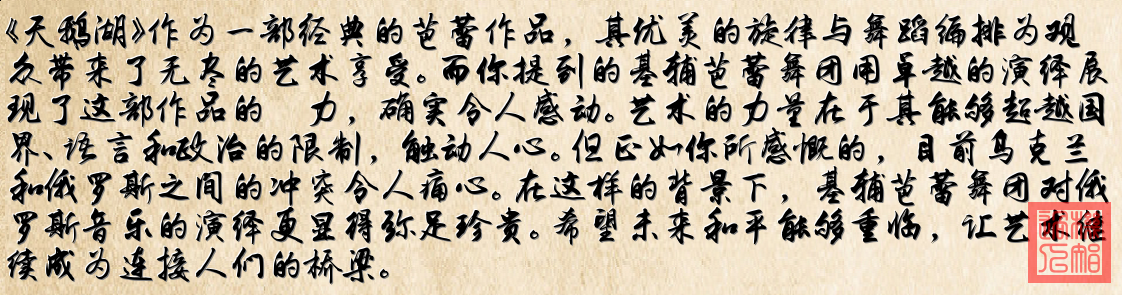 《天鹅湖》作为一部经典的芭蕾作品，其优美的旋律与舞蹈编排为观
众带来了无尽的艺术享受。而你提到的基辅芭蕾舞团用卓越的演绎展
现了这部作品的 力，确实令人感动。艺术的力量在于其能够超越国
界、语言和政治的限制，触动人心。但正如你所感慨的，目前乌克兰
和俄罗斯之间的冲突令人痛心。在这样的背景下，基辅芭蕾舞团对俄
罗斯音乐的演绎更显得弥足珍贵。希望未来和平能够重临，让艺术继
续成为连接人们的桥梁。